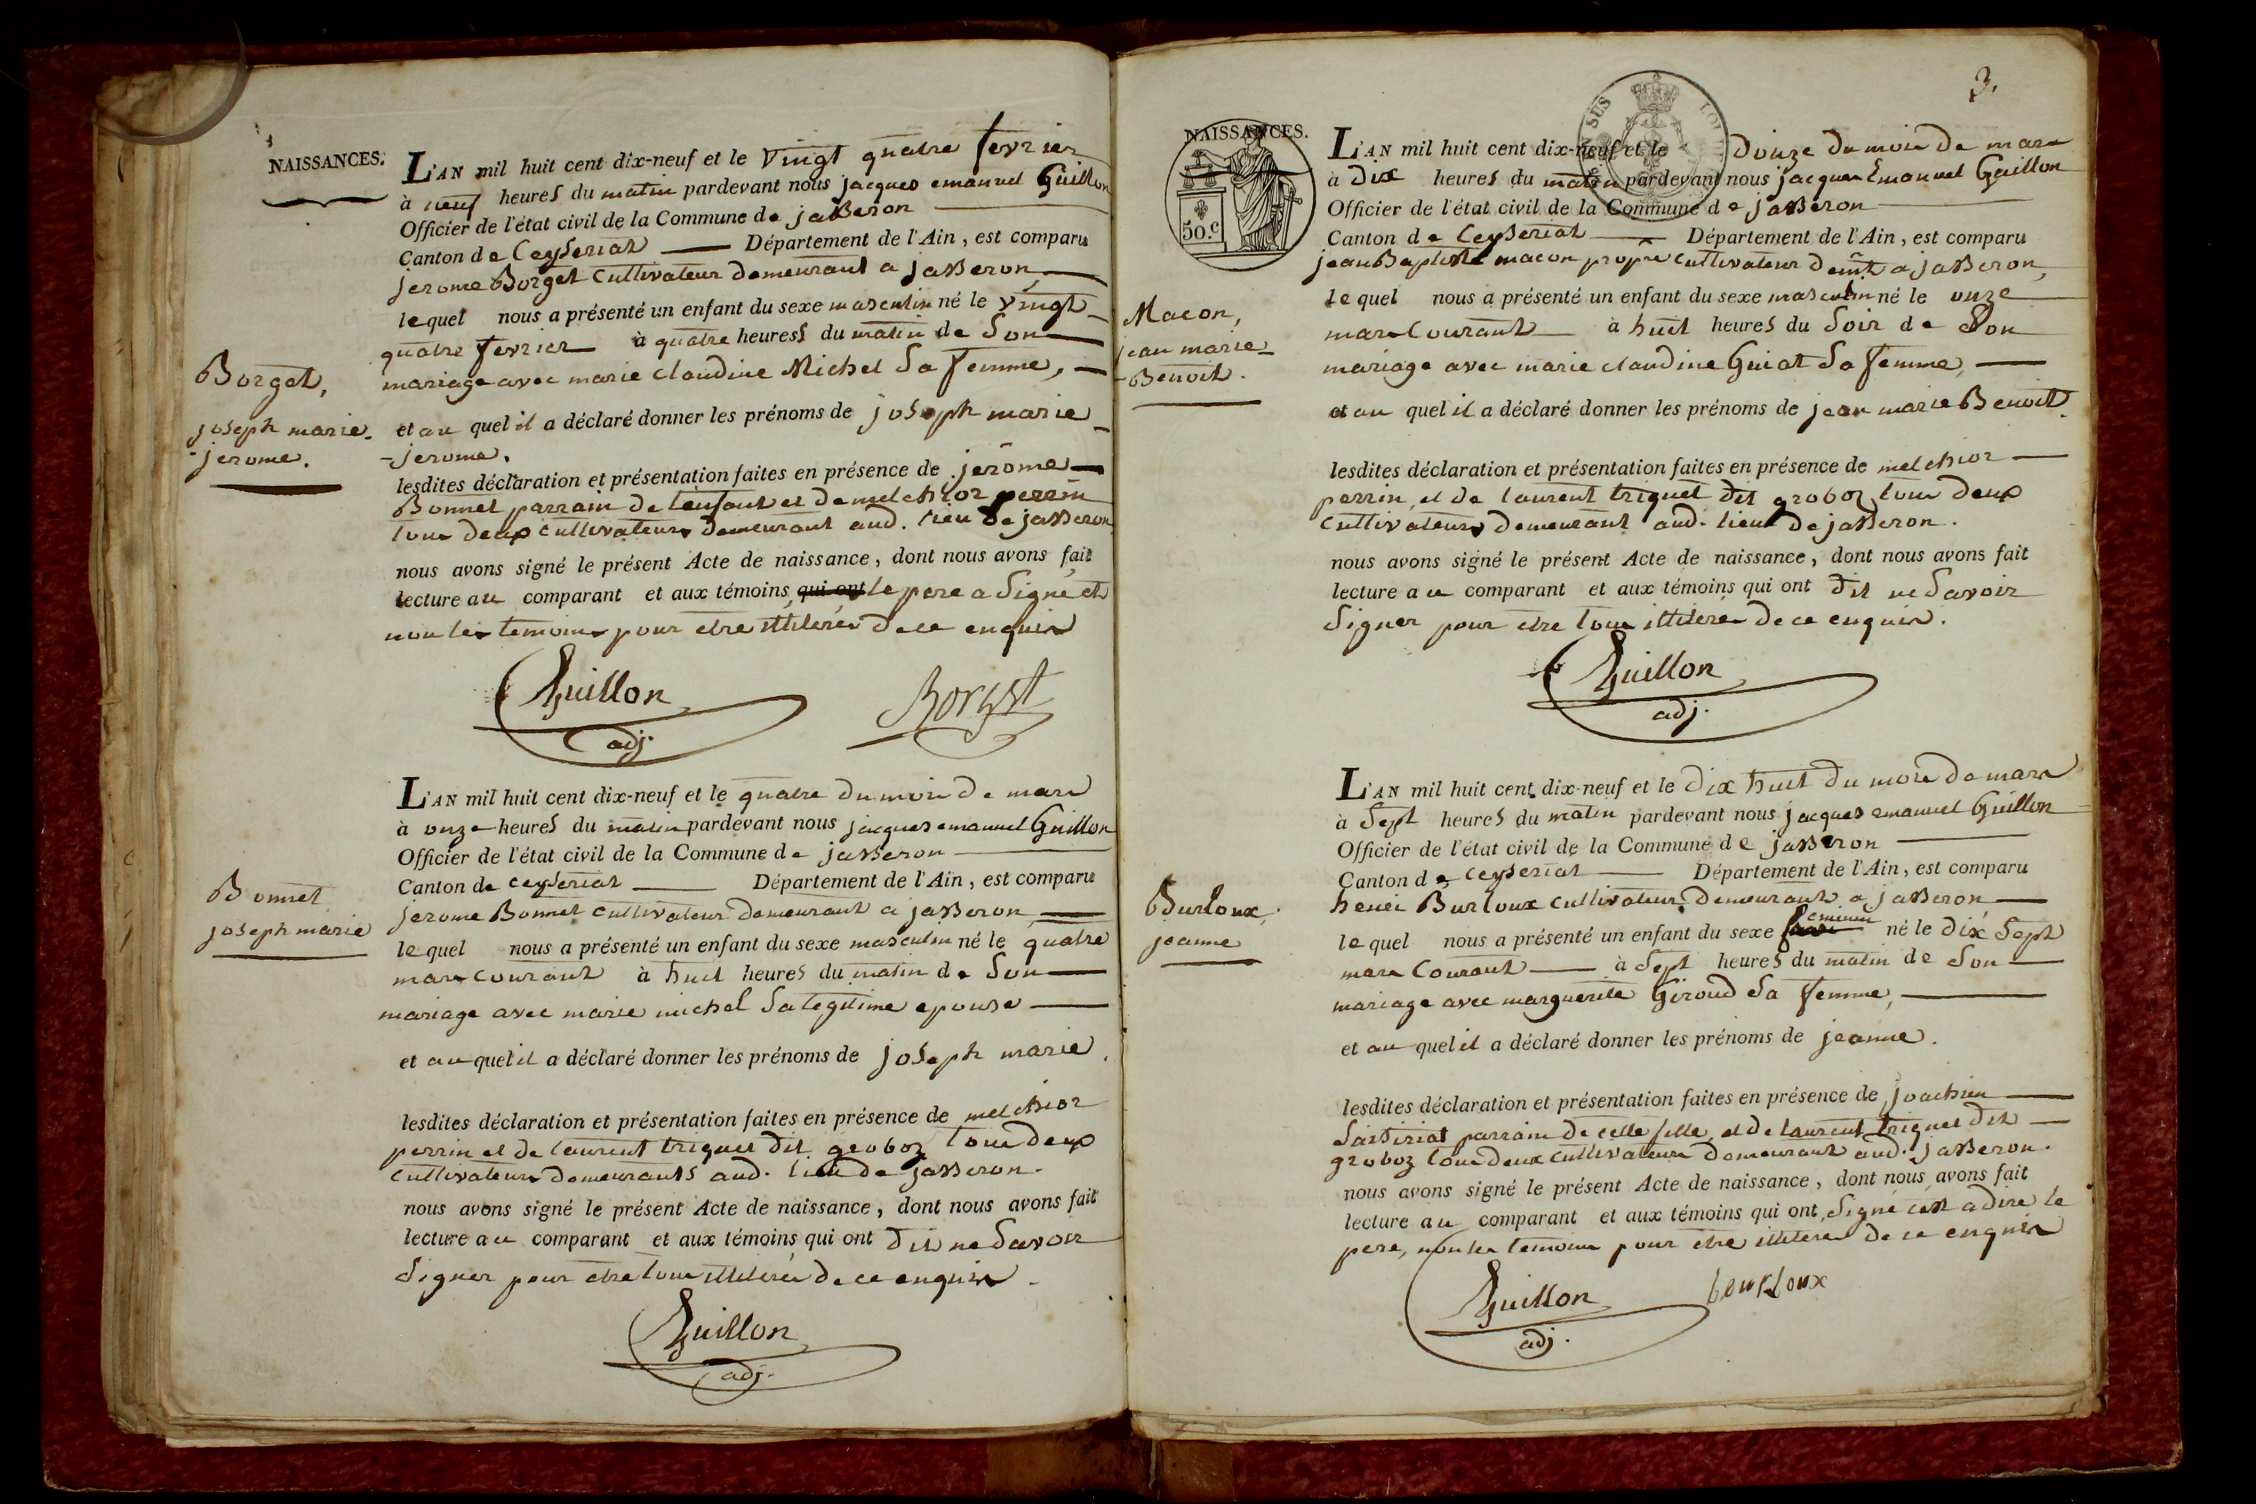 NAISSANCES.
L'AN mil huit cent dix-neuf et le vingt quatre fevrier
à neuf heures du matin pardevant nous jacques emanuel Guillon
Officier de l'état civil de la Commune de jasseron
Canton de Ceyseriat Département de l'Ain, est comparu
jerome Borget Cultivateur demeurant a jasseron,
lequel nous a présenté un enfant du sexe masculin né le vingt
quatre fevrier à quatre heuress du matin de Son
mariage avec marie claudine Michel Sa femme,
Borget,
joseph marie-
-jerome.
et au quel il a déclaré donner les prénoms de joseph marie-
-jerome.
lesdites déclaration et présentation faites en présence de jerôme
Bonnet parrain de lenfant et de melchior perrin
tous deux cultivateurs demeurant aud. lieu de jasseron
nous avons signé le présent Acte de naissance, dont nous avons fait
lecture au comparant et aux témoins, qui ont le pere a Signé et
non les temoins pour etre illiterés de ce enquis
Guillon
adj.
Borget
L'AN mil huit cent dix-neuf et le quatre du mois de mars
à onze heures du matin pardevant nous jacques emanuel Guillon
Officier de l'état civil de la Commune de jasseron
Canton de ceyseriat Département de l'Ain, est comparu
Bonnet
joseph marie
jerome Bonnet cultivateur demeurant a jasseron
lequel nous a présenté un enfant du sexe masculin né le quatre
mars courant à huit heures du matin de Son
mariage avec marie michel Sa legitime epouse
et au quel il a déclaré donner les prénoms de joseph marie.
lesdites déclaration et présentation faites en présence de melchior
perrin et de laurent triquet dit groboz tous deux
cultivateurs demeurants aud. lieu de jasseron.
nous avons signé le présent Acte de naissance, dont nous avons fait
lecture au comparant et aux témoins qui ont dit ne Savoir
Signer pour etre tous illiterés de ce enquis.
Guillon
adj.
3.
NAISSANCES.
50.c
L'AN mil huit cent dix-neuf et le douze du mois de mars
à dix heures du matin pardevant nous jacques Emanuel Guillon
Officier de l'état civil de la Commune de jasseron
Canton de Ceyseriat Département de l'Ain, est comparu
jean Baptiste macon propre cultivateur demt a jasseron,
lequel nous a présenté un enfant du sexe masculin né le onze
mars Courant à huit heures du Soir de Son
mariage avec marie claudine Guiat Sa femme,
Macon,
jean marie-
-Benoit.
et au quel il a déclaré donner les prénoms de jean marie Benoit.
lesdites déclaration et présentation faites en présence de melchior
perrin, et de laurent triquet dit groboz tous deux
Cultivateurs demeurant aud. lieu de jasseron.
nous avons signé le présent Acte de naissance, dont nous avons fait
lecture au comparant et aux témoins qui ont dit ne Savoir
Signer pour etre tous illiterés de ce enquis.
Guillon
adj.
L'AN mil huit cent dix-neuf et le dix huit du mois de mars
à Sept heures du matin pardevant nous jacques emanuel Guillon
Officier de l'état civil de la Commune de jasseron
Canton de Ceyseriat Département de l'Ain, est comparu
Burloux,
jeanne
henri Burloux cultivateur demeurant a jasseron
lequel nous a présenté un enfant du sexe feminin né le dix Sept
mars Courant à Sept heures du matin de Son
mariage avec marguerite Giroud Sa femme,
et au quel il a déclaré donner les prénoms de jeanne.
lesdites déclaration et présentation faites en présence de joachim
parrain de cette fille, et de laurent triquet dit
groboz tous deux cultivateurs demeurant aud. jasseron.
nous avons signé le présent Acte de naissance, dont nous avons fait
lecture au comparant et aux témoins qui ont Signé cest a dire le
pere, non les temoins pour etre illiterés de ce enquis
Guillon
adj.
bourloux